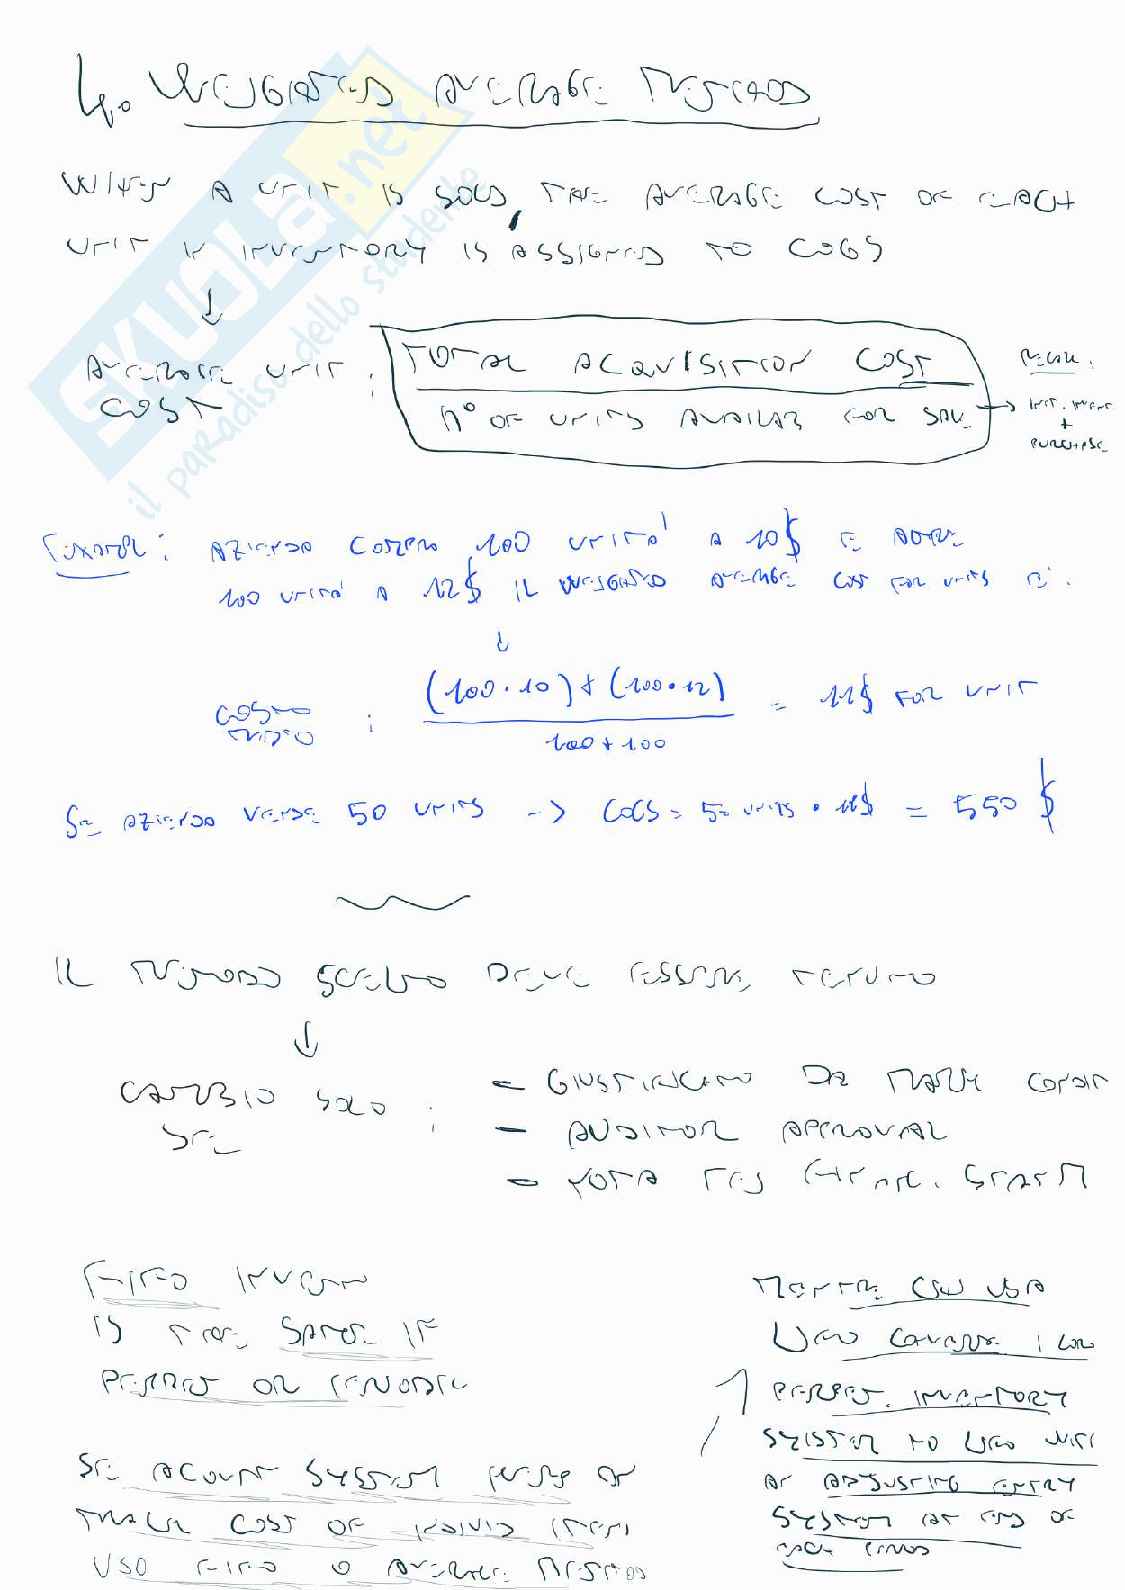 4. WEIGHTED AVERAGE METHOD
WHEN A UNIT IS SOLD, THE AVERAGE COST OF EACH
UNIT IN INVENTORY IS ASSIGNED TO COGS
↓
AVERAGE UNIT COST : TOTAL ACQUISITION COST
N° OF UNITS AVAILAB FOR SALE → INIT. INVENT + PURCHASE
EXAMPLE: AZIENDA COMPRA 100 UNITÀ A 10$ E ALTRE
100 UNITÀ A 12$ IL WEIGHTED AVERAGE COST FOR UNITS È:
↓
COSTO MEDIO : (100 · 10) + (100 · 12)
100 + 100
= 11$ FOR UNIT
SE AZIENDA VENDE 50 UNITS -> COGS = 50 UNITS · 11$ = 550 $
IL METODO SCELTO DEVE ESSERE TENUTO
↓
CAMBIO SOLO SE :
- GIUSTIFICATO DA MARK CONDIT
- AUDITOR APPROVAL
- NOTA NEL FINANC. STATEM
FIFO INVENT
IS THE SAME IF
PERPET OR PERIODIC
SE ACCOUNT SYSTEM PERMET DI
TRACK COST OF INDIVID ITEMS
USO FIFO O AVERAGE METHOD
MENTRE CON USA
LIFO CAMBIA
PERPET. INVENTORY
SYSTEM NO LIFO WITH
AN ADJUSTING ENTRY
SYSTEM AT END OF
EACH PERIOD
SKUOLA.net
il paradiso dello studente